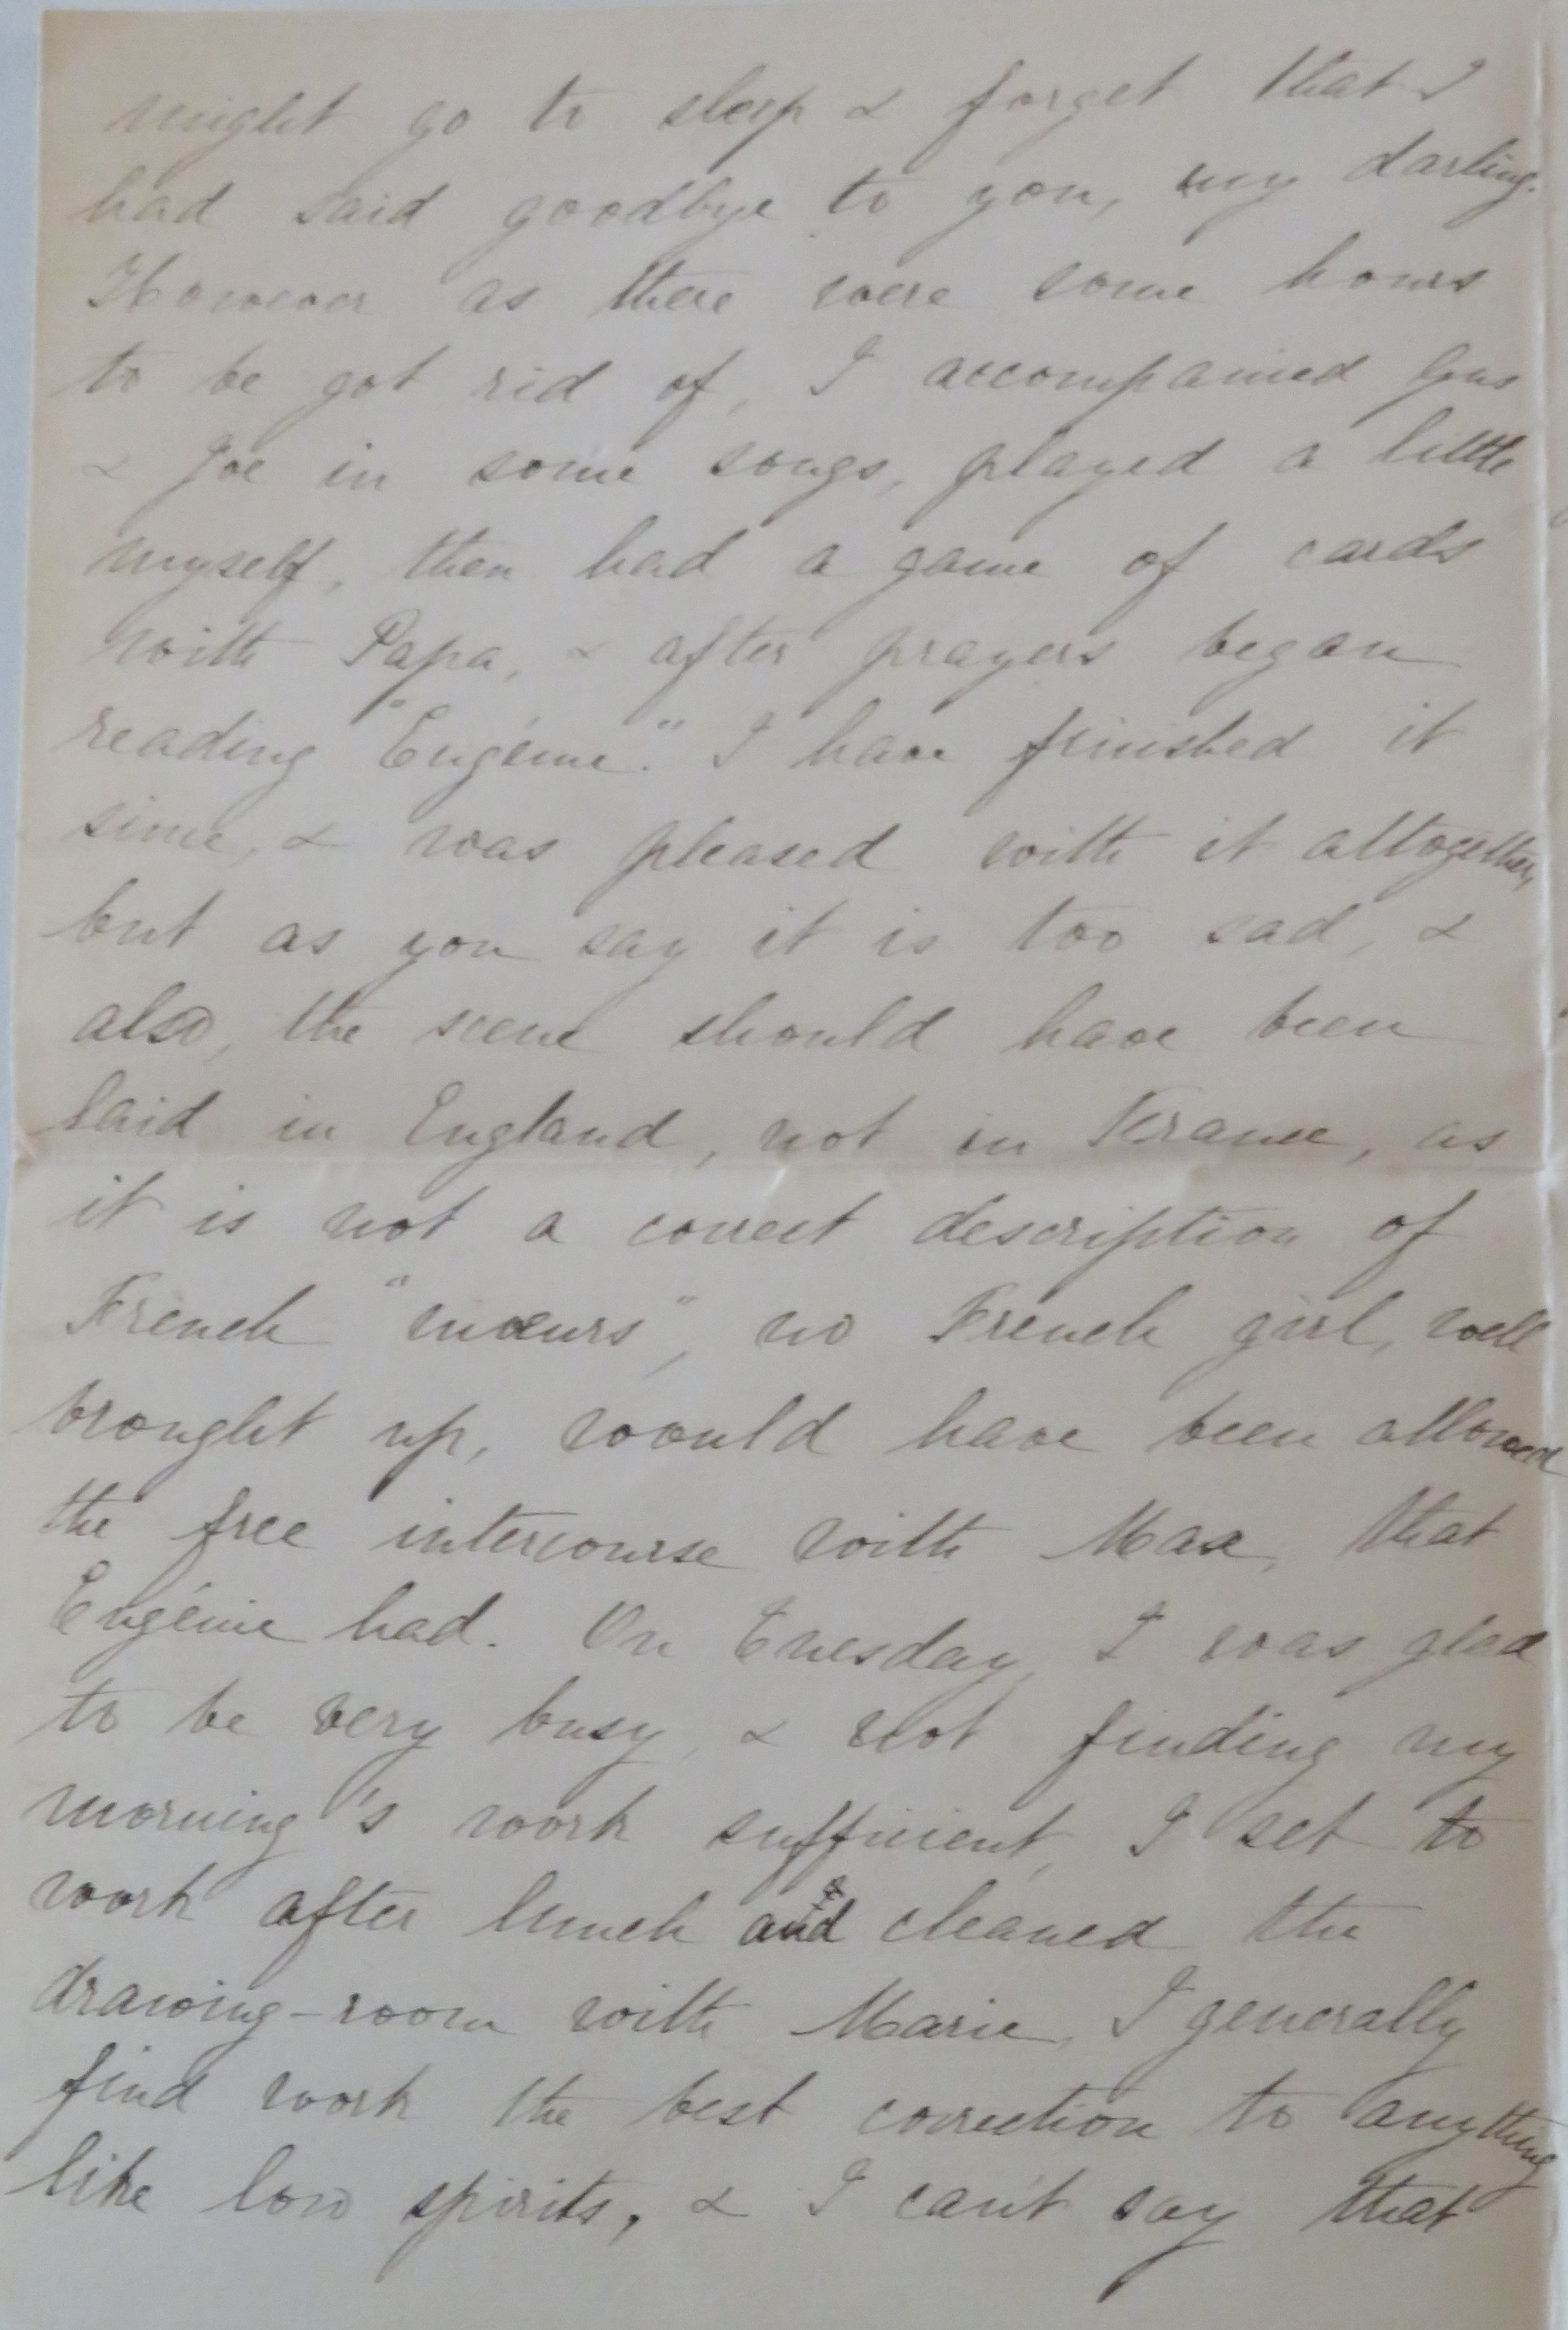 might go to sleep & forget that I
had said goodbye to you, my darling.
However as there were some hours
to be got rid of, I accompanied Gus
& Joe in some songs, played a little
myself, then had a game of cards
with Papa, & after prayers began
reading "Eugénie." I have finished it
since, & was pleased with it altogether,
but as you say it is too sad, &
also, the scene should have been
laid in England, not in France, as
it is not a correct description of
French "mœurs", no French girl, well
brought up, would have been allowed
the free intercourse with Max, that
Eugénie had. On Tuesday, I was glad
to be very busy, & not finding my
morning's work sufficient, I set to
work after lunch and cleaned the
drawing-room with Marie, I generally
find work the best correction to anything
like low spirits, & I can't say that